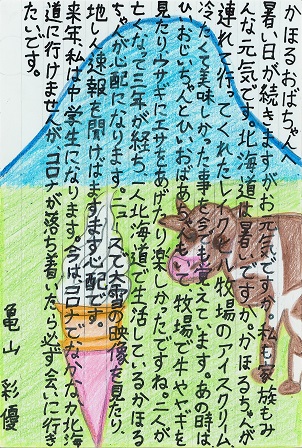 かほるおばちゃんへ
暑い日が続きますがお元気ですか。私も家族もみ
んな元気です。北海道は暑いですか。かほるちゃんが
連れて行ってくれたレイクヒル牧場のアイスクリーム
冷たくて美味しかった事を今でも覚えています。あの時は
ひいおじいちゃんとひいおばあちゃんもいて牧場で牛やヤギを
見たりウサギにエサをあげたり楽しかったですね。二人が
亡くなって三年が経ち、一人北海道で生活しているかほる
ちゃんが心配になります。ニュースで大雪の映像を見たり、
地しん速報を聞けばますます心配です。
来年、私は中学生になります。今はコロナでなかなか北海
道に行けませんが、コロナが落ち着いたら必ず会いに行き
たいです。
亀山 彩優